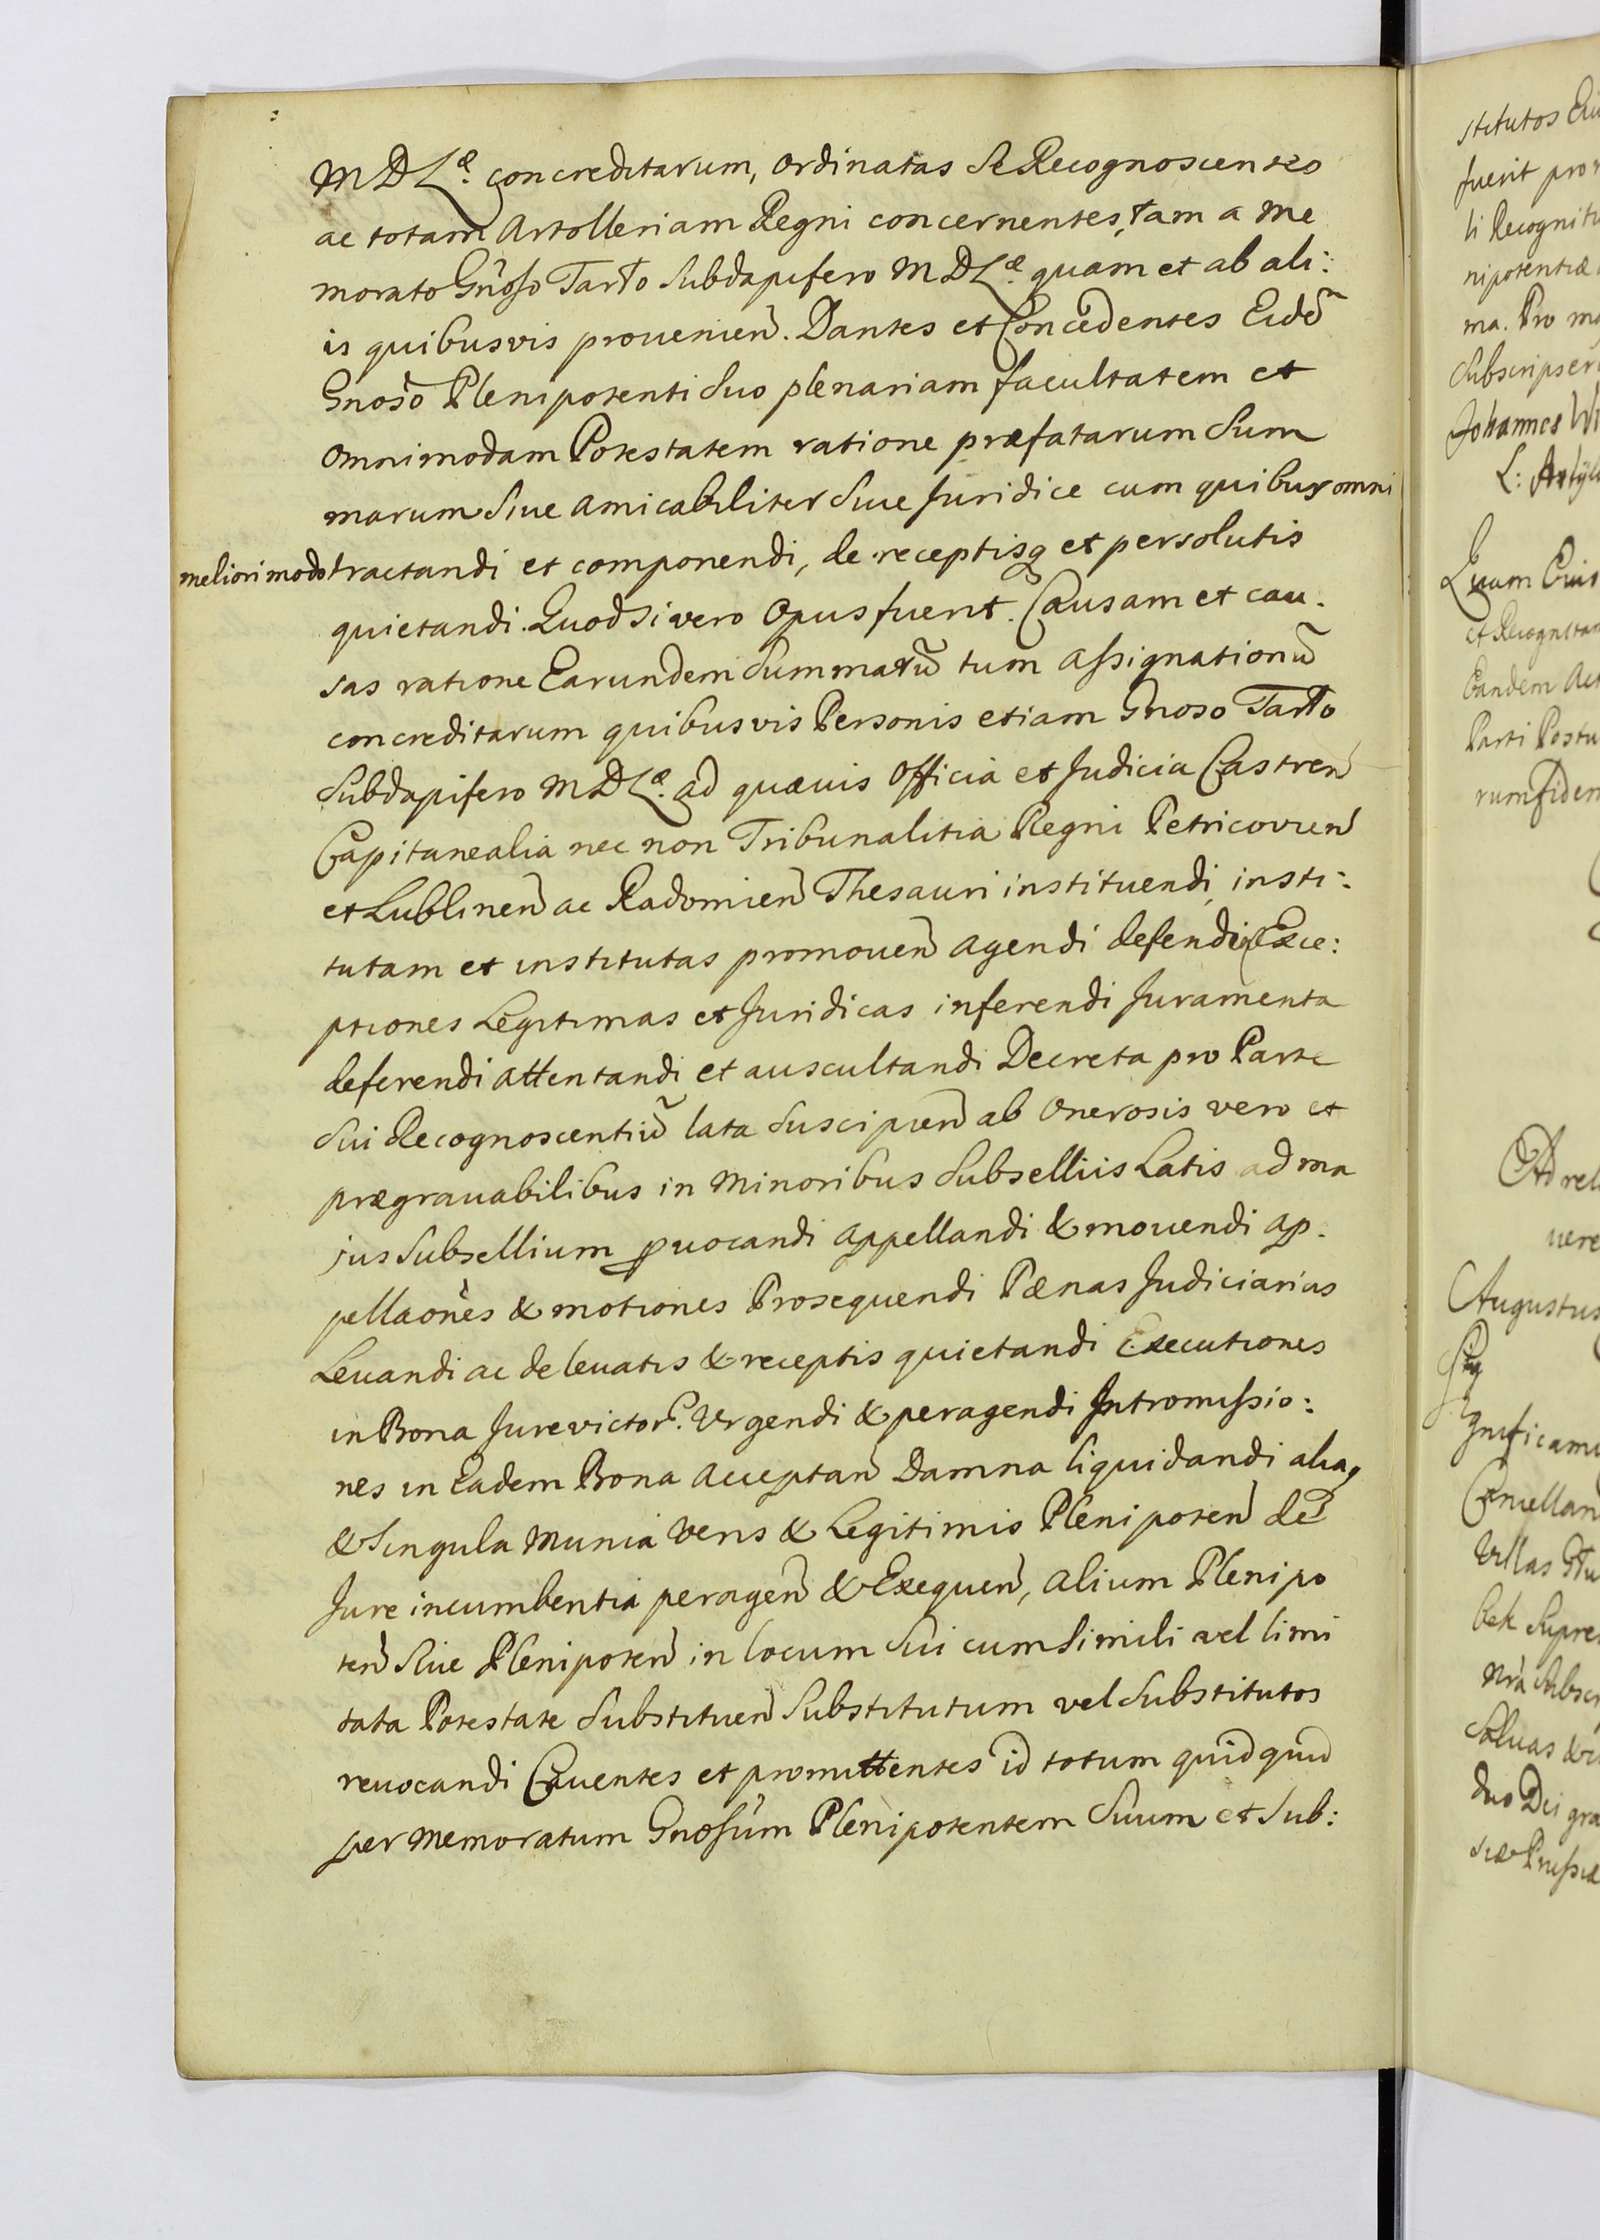 M D Læ. concreditarum, ordinatas Se Recognoscentes
ac totam Artolleriam Regni concernentes, tam a me
morato Gnoso Tarło Subdapifero M D Læ. quam et ab ali:
is quibusvis prouenien. Dantes et Concedentes Eidem
Gnoso Plenipotenti Suo plenariam facultatem et
omnimodam Potestatem ratione præfatarum Sum
marum Siue amicabiliter Siue Juridice cum quibusvis omni
meliori modo tractandi et componendi, de receptisq et persolutis
quietandi. Quod si vero Opus fuerit. Causam et cau.
sas ratione Earundem Summarũ tum Assignationũ
concreditarum quibusvis Personis etiam Gnoso Tarło
Subdapifero M D Læ. ad quæuis Officia et Judicia Castren
Capitanealia nec non Tribunalitia Regni Petricovien
et Lublinen ac Radomien Thesauri instituendi, insti:
tutam et institutas promouen agendi defendi Exce:
ptiones Legitimas et Juridicas inferendi Juramenta
deferendi attentandi et auscultandi Decreta pro Parte
Sui Recognoscentiũ lata Suscipien ab onerosis vero et
prægrauabilibus in minoribus Subselliis Latis ad ma
jus Subsellium puocandi appellandi & mouendi ap.
pellaones & motiones Prosequendi Pænas Judiciarias
Leuandi ac de leuatis & receptis quietandi Executiones
in Bona Jurevictor. Urgendi & peragendi Intromissio:
nes in Eadem Bona acceptan Damna liquidandi aliaq
& Singula munia veris & Legitimis Plenipoten de
Jure incumbentia peragen & Exequen, alium Plenipo
ten Siue Plenipoten in locum Sui cum Simili vel limi
tata Potestate Substituen Substitutum vel Substitutos
reuocandi Cauentes et promittentes id totum quidquid
per memoratum Gnosum Plenipotentem Suum et Sub:
stitutos
fuerit
li
nipotentiæ
ma. Pro
Johannes
L:
Quam
Parti
rum fidem
Ad
Augustus
Villas
Supre
Saluas
Dei gra